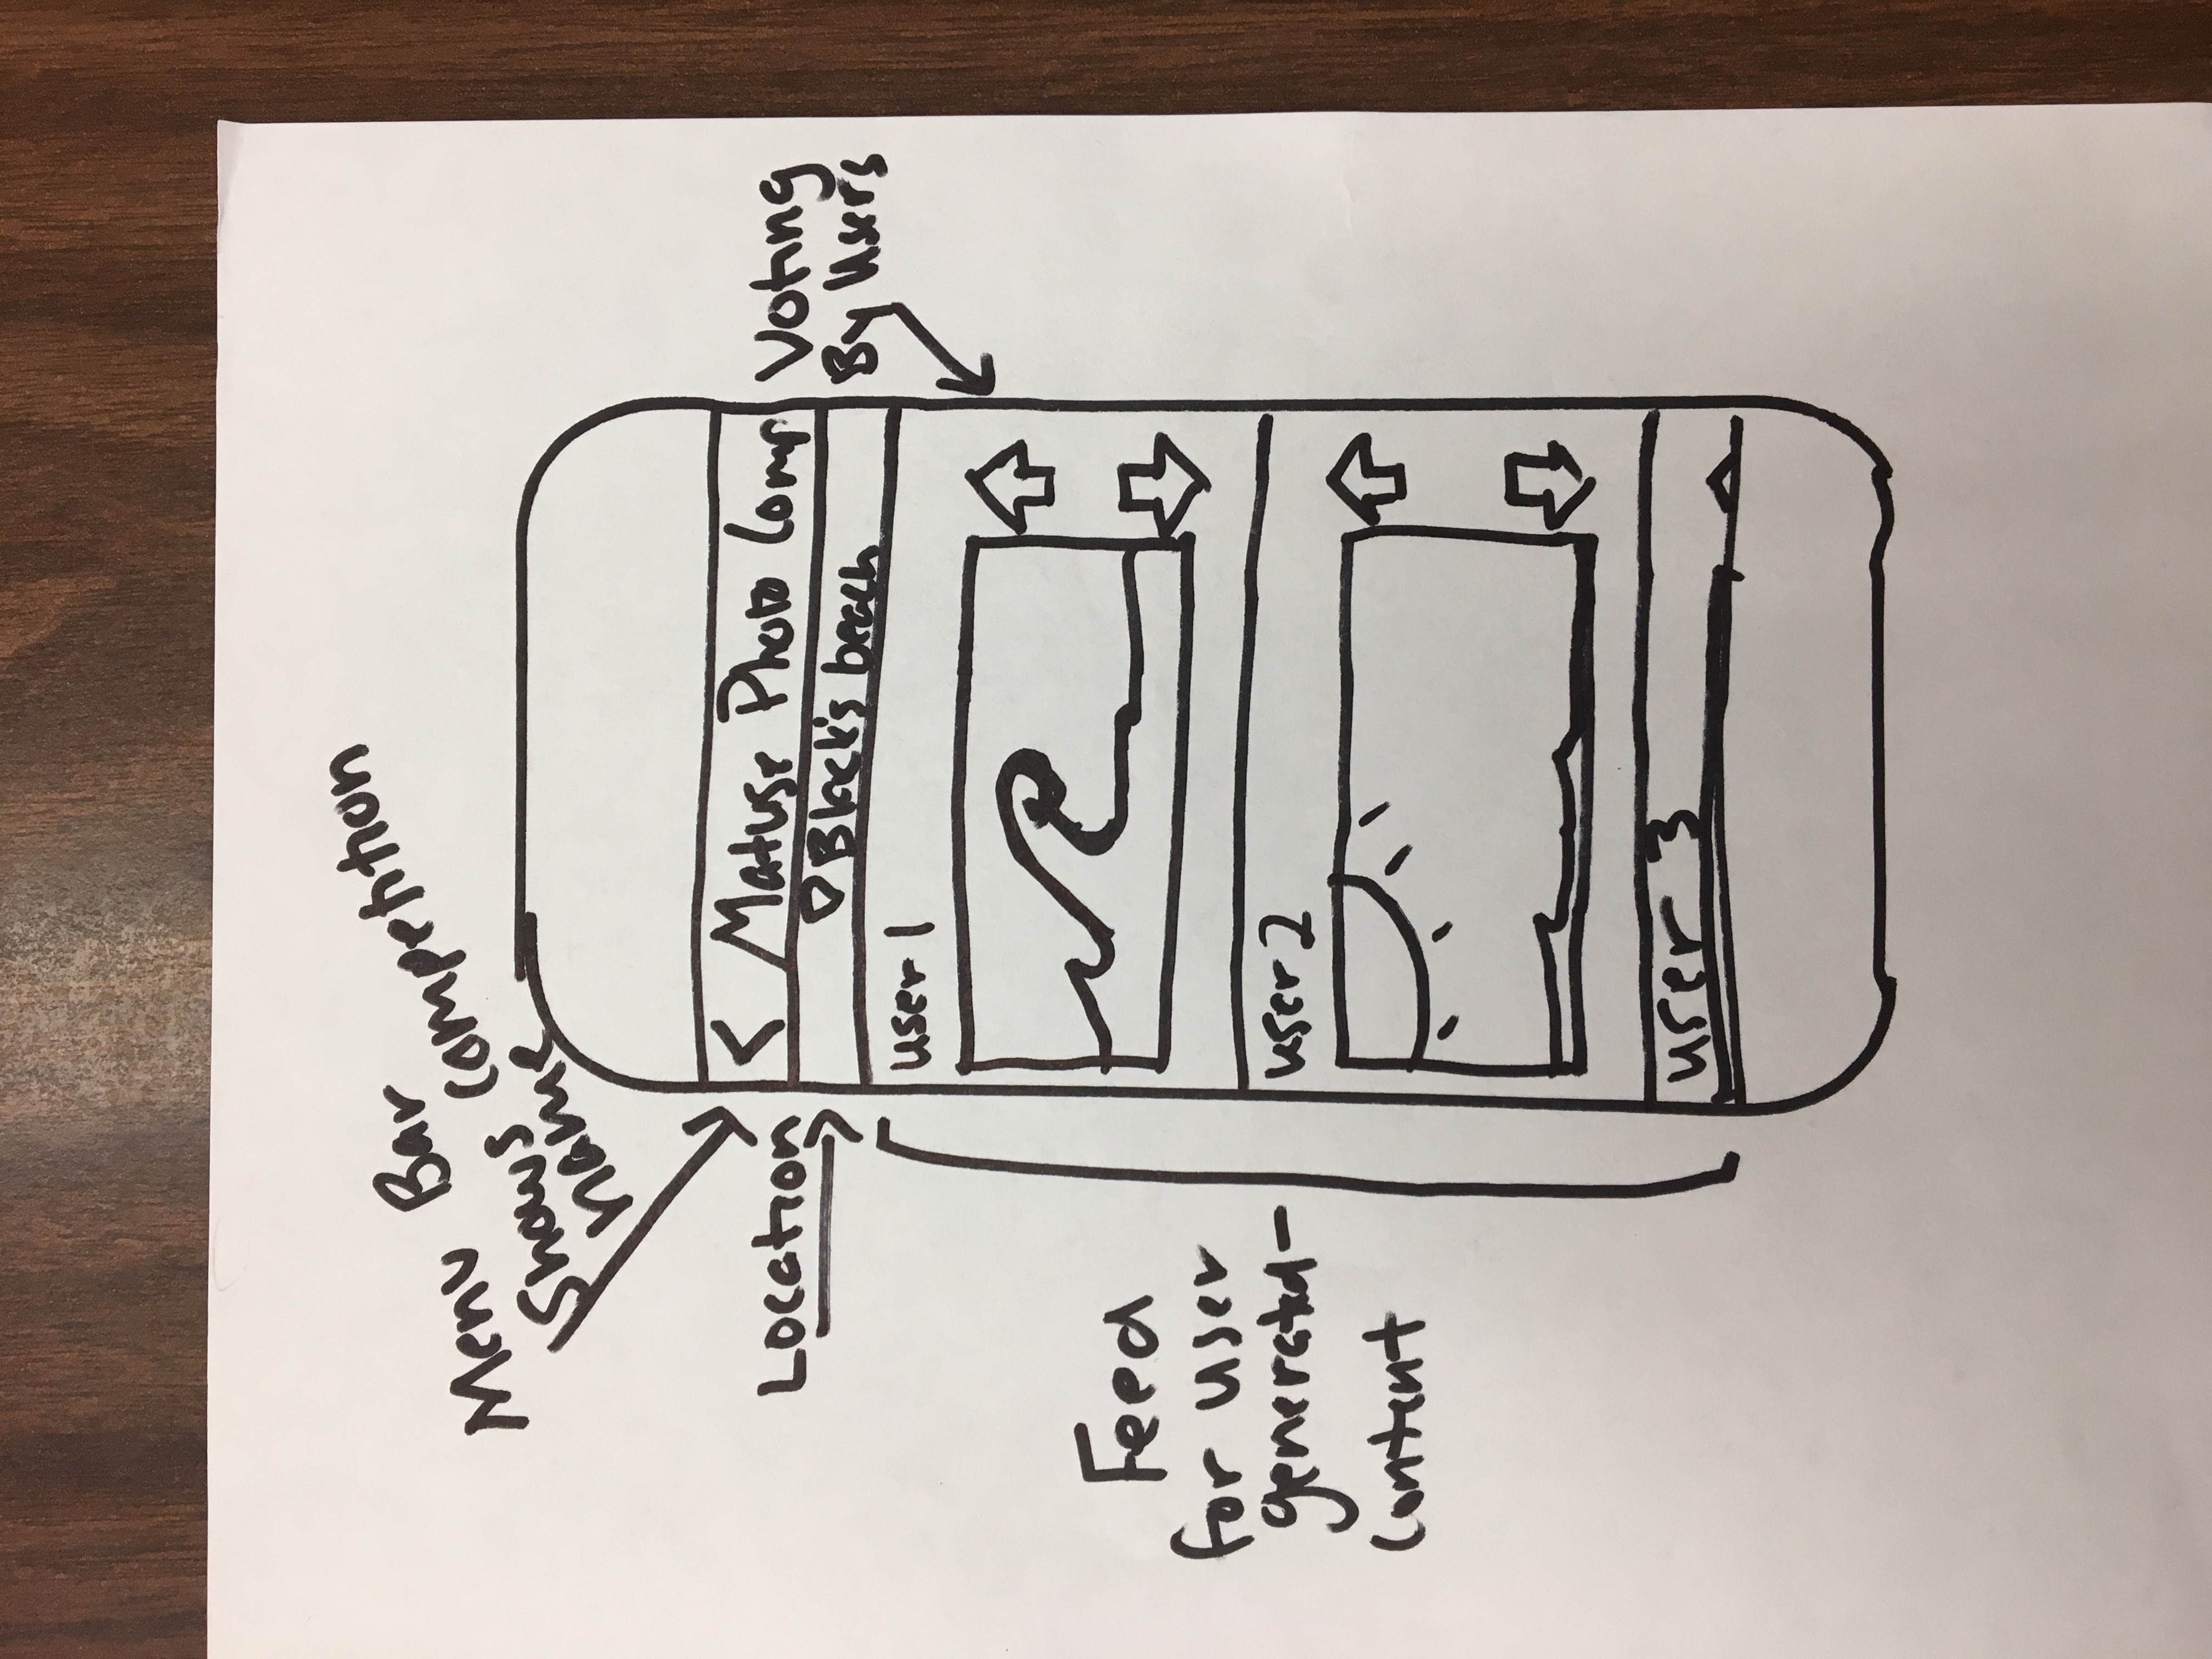 Menu Bar
Shows competition
name
Location
< Matuse Photo Comp
Black's beach
Voting
By Users
user 1
Feed
for user
generated-
content
user 2
user 3